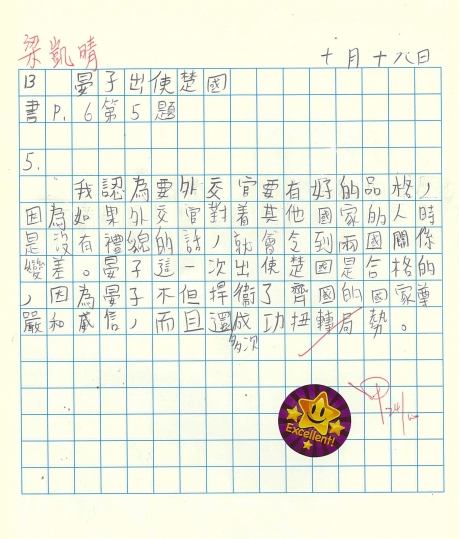 梁凱晴
十月十八日
13 晏子出使楚國
書P.6第5題
5.
我認為要外交官要有好的品格，
因為如果外交官對着其他國家的人時
是沒有禮貌的話，就會令到兩國關係
變差。晏子這一次出使楚國是合格的
，因為晏子不但捍衞了齊國的國家尊
嚴和威信，而且還成功扭轉局勢。
多次
Excellent!
甲